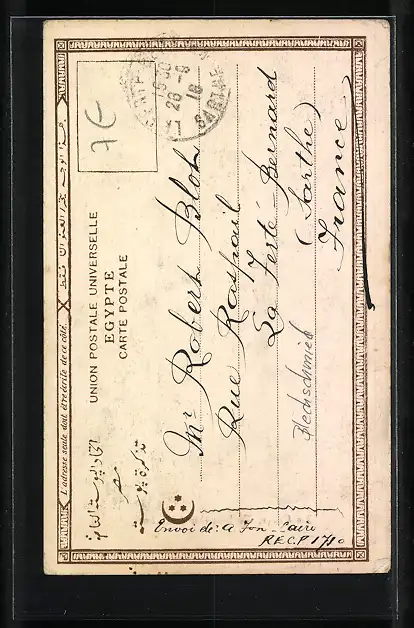 UNION POSTALE UNIVERSELLE
EGYPTE
CARTE POSTALE
L'adresse seule doit être écrite de ce côté.
تذكرة بوستة
مصر
7€
SARTHE
26-8
18
Mr Robert Blot
Rue Raspail
La Ferté-Bernard
(Sarthe)
France
Blechschmied
Envoi de: A Fon - Caire
R.E.C.P 1710